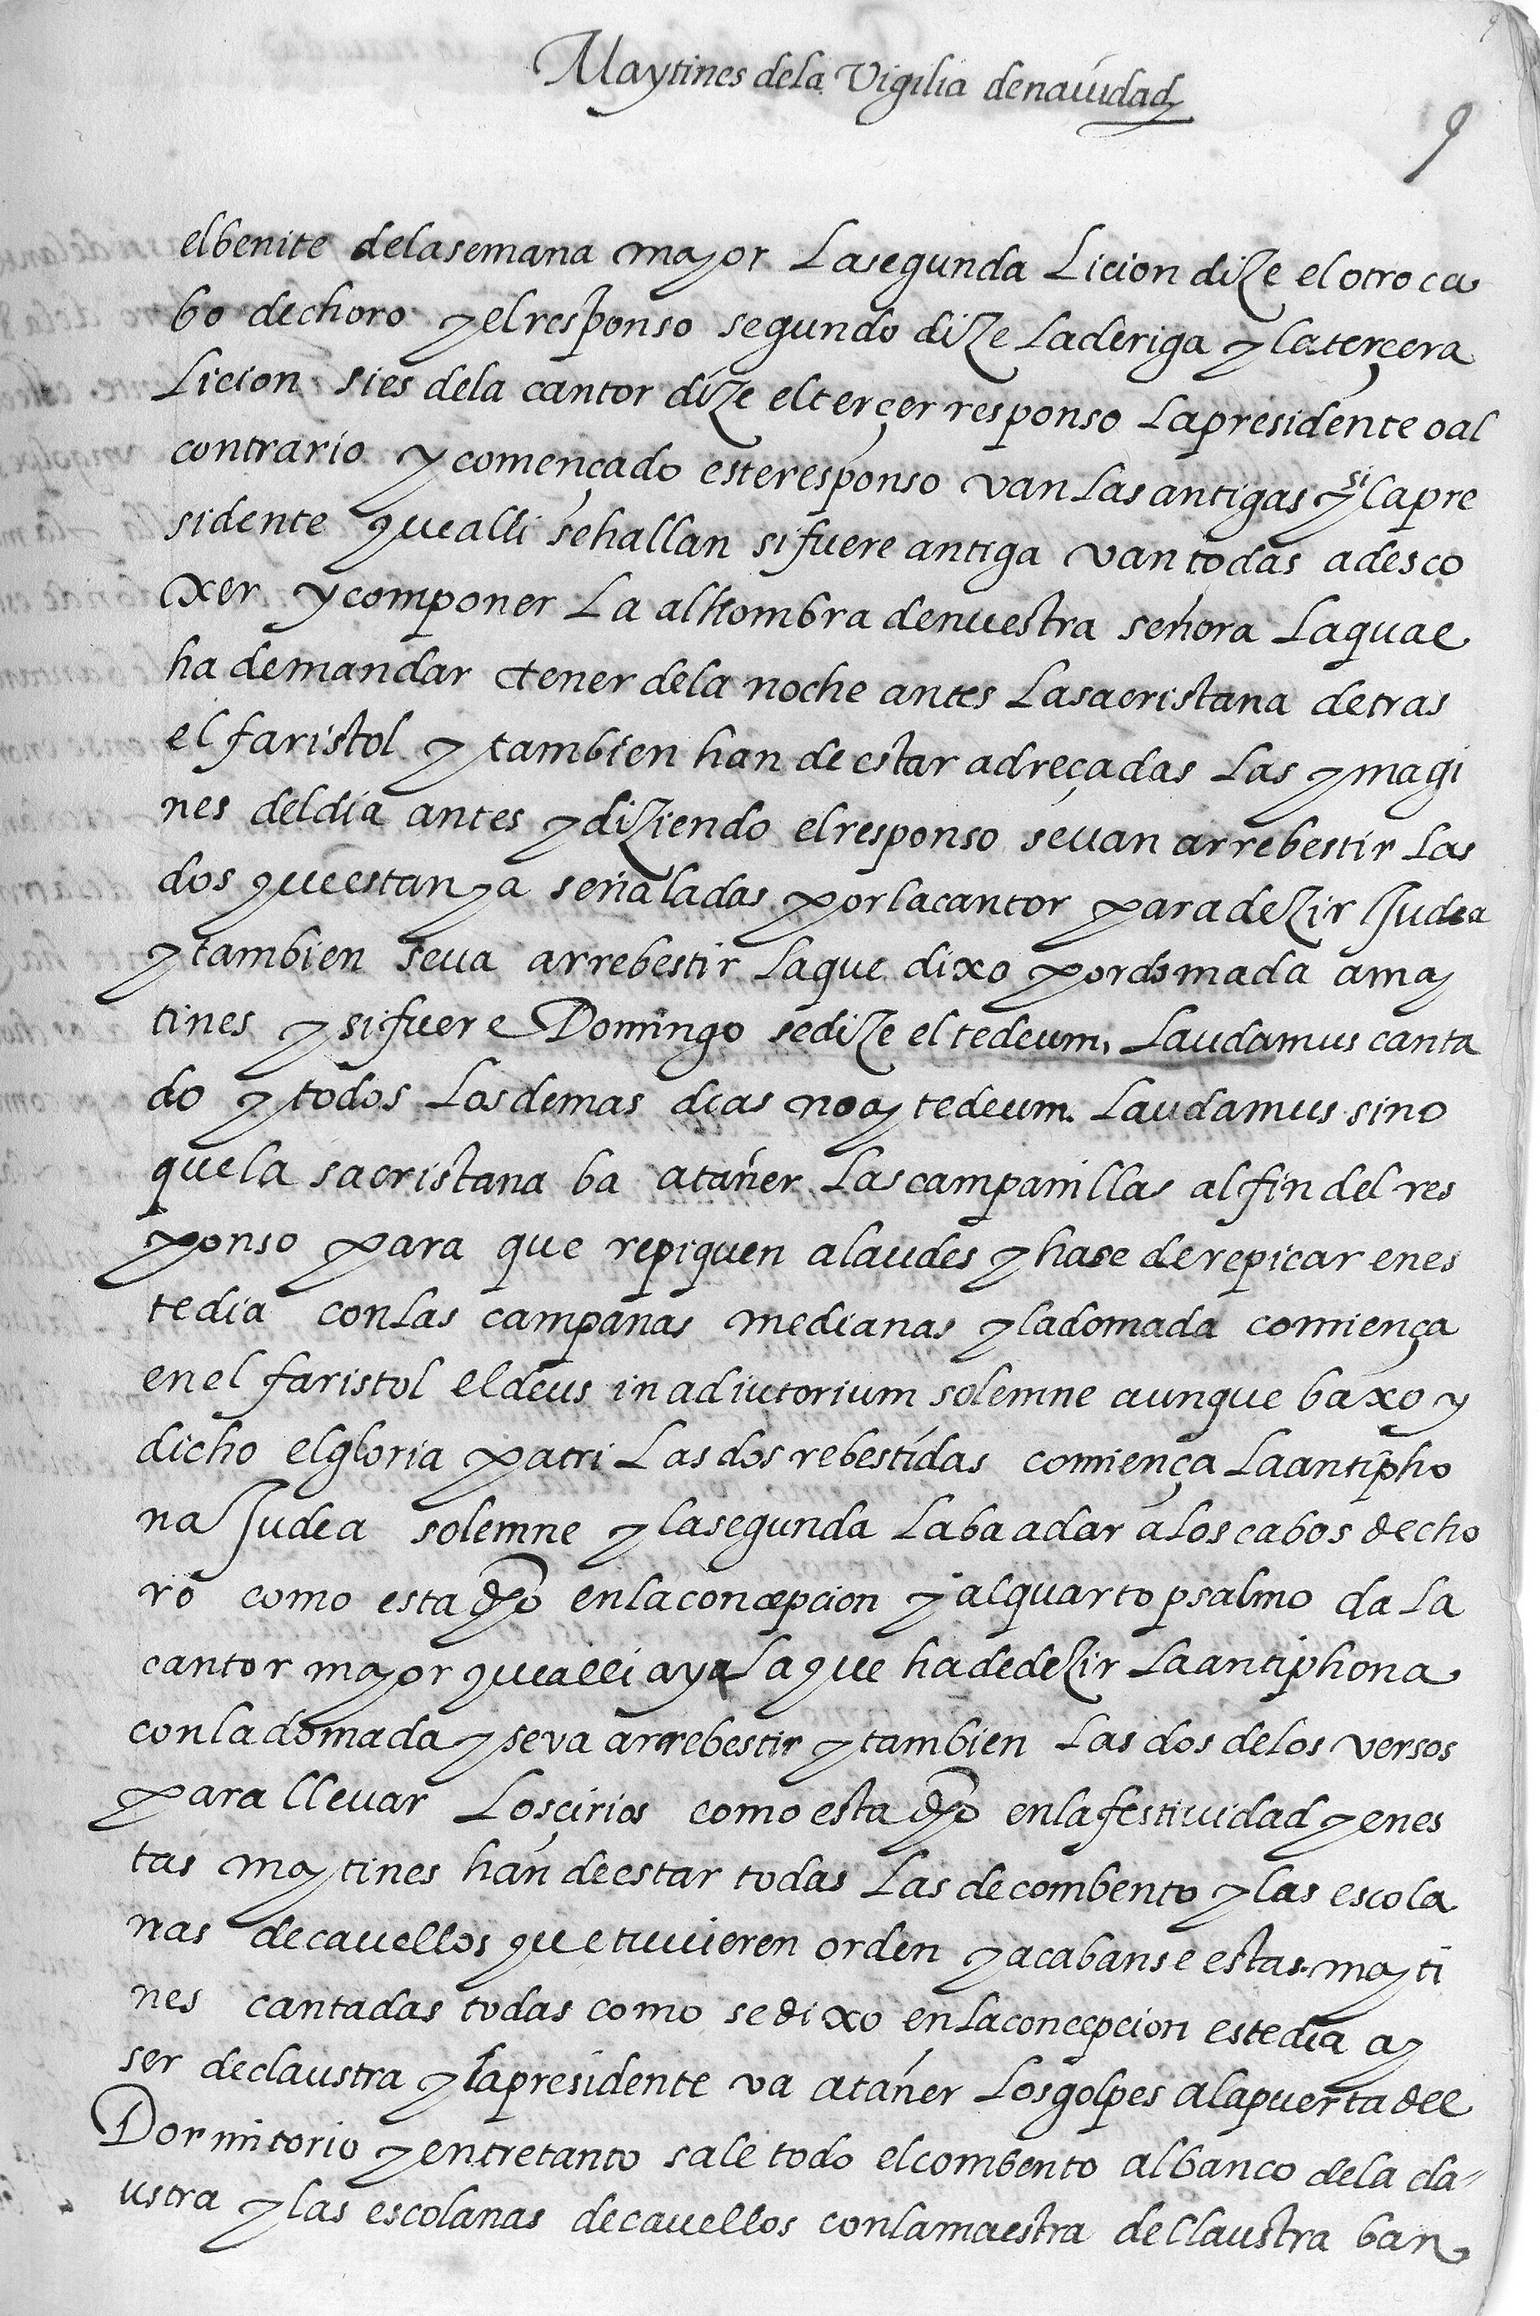 Maytines dela Vigilia denauidad
9
elbenite delasemana mayor Lasegunda Licion dize elotro ca
bo dechoro y elresponso segundo dize Laderiga y laterçera
Licion sies dela cantor dize elterçer responso Lapresidente oal
contrario y començado esteresponso van Lasantigas y si lapre
sidente quealli sehallan sifuere antiga van todas adesco
xer y componer La alhombra denuestra señora Laqual
ha demandar tener dela noche antes Lasacristana detras
el faristol y tambien han de estar adreçadas Las ymagi
nes deldia antes y diziendo elresponso seuan arrebestir Las
dos queestan ya señaladas porlacantor para dezir Judea
y tambien seua arrebestir Laque dixo pordomada a may
tines y sifuere Domingo sedize el tedeum Laudamus canta
do y todos Losdemas dias noay tedeum Laudamus sino
quela sacristana ba atañer Lascampanillas alfin del res
ponso para que repiquen alaudes y hase derepicar enes
tedia conlas campanas medianas y ladomada comiença
enel faristol eldeus in adiutorium solemne aunque baxo y
dicho elgloria patri Lasdos rebestidas comiença Laantipho
na Judea solemne y lasegunda Laba adar alos cabos decho
ro como esta dho enlaconcepcion y alquarto psalmo da La
cantor mayor quealli aya Laque hadedezir Laantiphona
conladomada y seva arrebestir y tambien Las dos delos versos
para lleuar Loscirios como esta dho enlafestiuidad y enes
tas maytines han deestar todas Las decombento y las escola
nas decauellos quetuuieren orden y acabanse estas mayti
nes cantadas todas como sedixo enlaconcepcion estedia ay
ser declaustra y lapresidente va atañer Losgolpes alapuerta del
Dormitorio y entretanto sale todo elcombento albanco dela cla-
ustra y las escolanas decauellos conlamaestra dellaustra ban